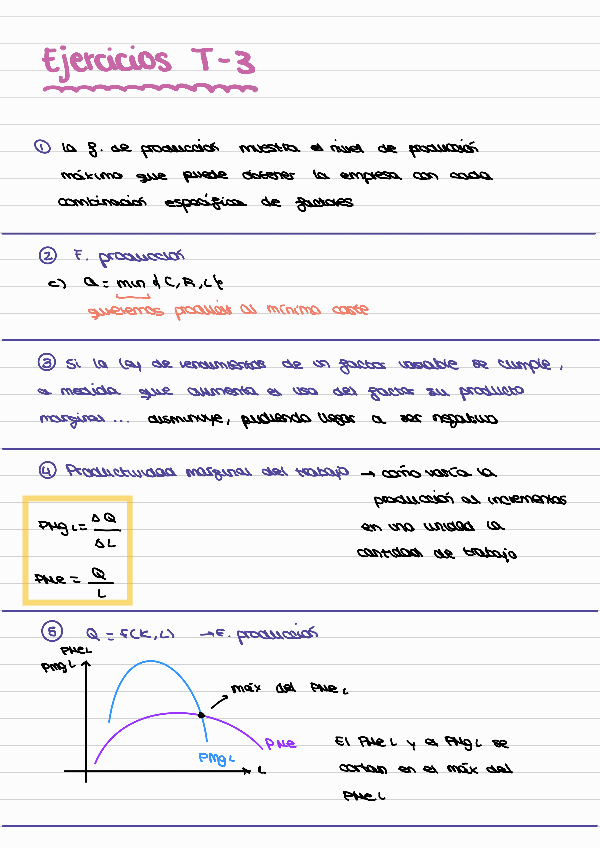 Ejercicios T-3
① La f. de producción muestra el nivel de producción
máximo que puede obtener la empresa con cada
combinación específica de factores
② F. producción
c) Q = min {C, R, L}
queremos producir al mínimo coste
③ Si la ley de rendimientos de un factor variable se cumple,
a medida que aumenta el uso del factor su producto
marginal ... disminuye, pudiendo llegar a ser negativo
④ Productividad marginal del trabajo → cómo varía la
producción al incrementar
en una unidad la
cantidad de trabajo
PMgL = ΔQ / ΔL
PMe = Q / L
⑤ Q = f(K, L) → F. producción
PMeL
PMgL
máx del PMeL
PMe
PMgL
L
El PMeL y el PMgL se
cortan en el máx del
PMeL